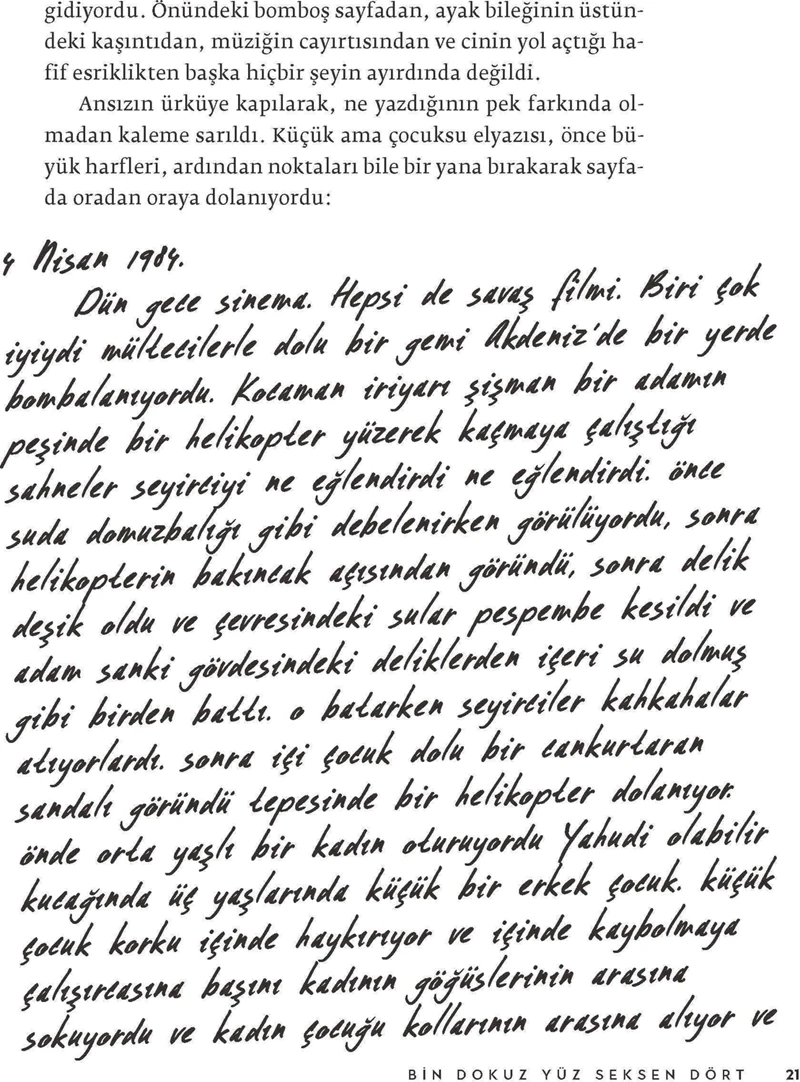 gidiyordu. Önündeki bomboş sayfadan, ayak bileğinin üstün-
deki kaşıntıdan, müziğin cayırtısından ve cinin yol açtığı ha-
fif esriklikten başka hiçbir şeyin ayırdında değildi.
Ansızın ürküye kapılarak, ne yazdığının pek farkında ol-
madan kaleme sarıldı. Küçük ama çocuksu elyazısı, önce bü-
yük harfleri, ardından noktaları bile bir yana bırakarak sayfa-
da oradan oraya dolanıyordu:
4 Nisan 1984.
Dün gece sinema. Hepsi de savaş filmi. Biri çok
iyiydi mültecilerle dolu bir gemi Akdeniz'de bir yerde
bombalanıyordu. Kocaman iriyarı şişman bir adamın
peşinde bir helikopter yüzerek kaçmaya çalıştığı
sahneler seyirciyi ne eğlendirdi ne eğlendirdi. önce
suda domuzbalığı gibi debelenirken görülüyordu, sonra
helikopterin bakıncak açısından göründü, sonra delik
deşik oldu ve çevresindeki sular pespembe kesildi ve
adam sanki gövdesindeki deliklerden içeri su dolmuş
gibi birden battı. o batarken seyirciler kahkahalar
atıyorlardı. sonra içi çocuk dolu bir cankurtaran
sandalı göründü tepesinde bir helikopter dolanıyor.
önde orta yaşlı bir kadın oturuyordu Yahudi olabilir
kucağında üç yaşlarında küçük bir erkek çocuk. küçük
çocuk korku içinde haykırıyor ve içinde kaybolmaya
çalışırcasına başını kadının göğüslerinin arasına
sokuyordu ve kadın çocuğu kollarının arasına alıyor ve
BİN DOKUZ YÜZ SEKSEN DÖRT 21